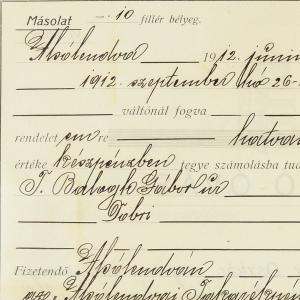 Másolat — . 10 fillér bélyeg.
Alsólendva 1912. juni
1912. szeptember hó 26-
váltónál fogva
rendelet em re hatvan
értéke készpénzben tegye számolásba tud
T. Balogh Gábor úr
Dobri
Fizetendő Alsólendván
az Alsólendvai Takarékpén